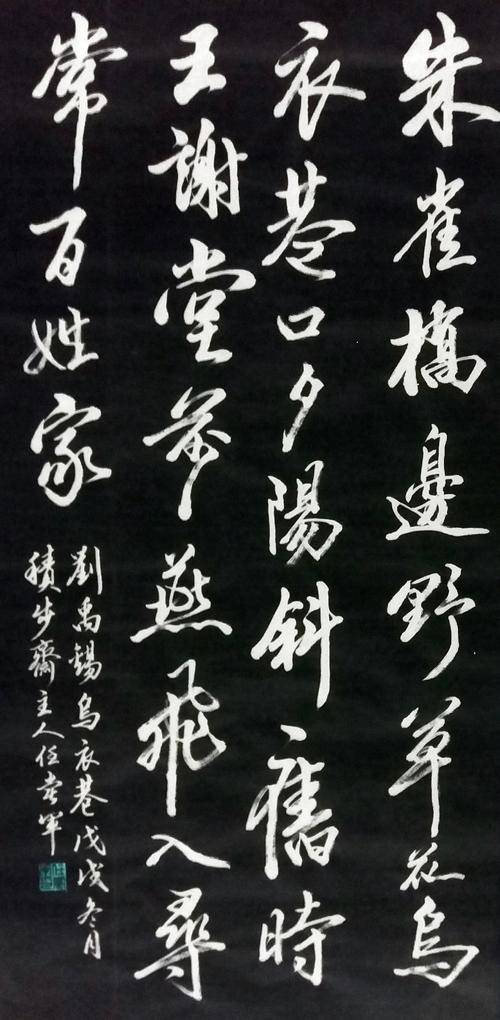 朱雀橋邊野草花烏
衣巷口夕陽斜舊時
王謝堂前燕飛入尋
常百姓家
劉禹錫烏衣巷戊戌冬月
積步齋主人任軍